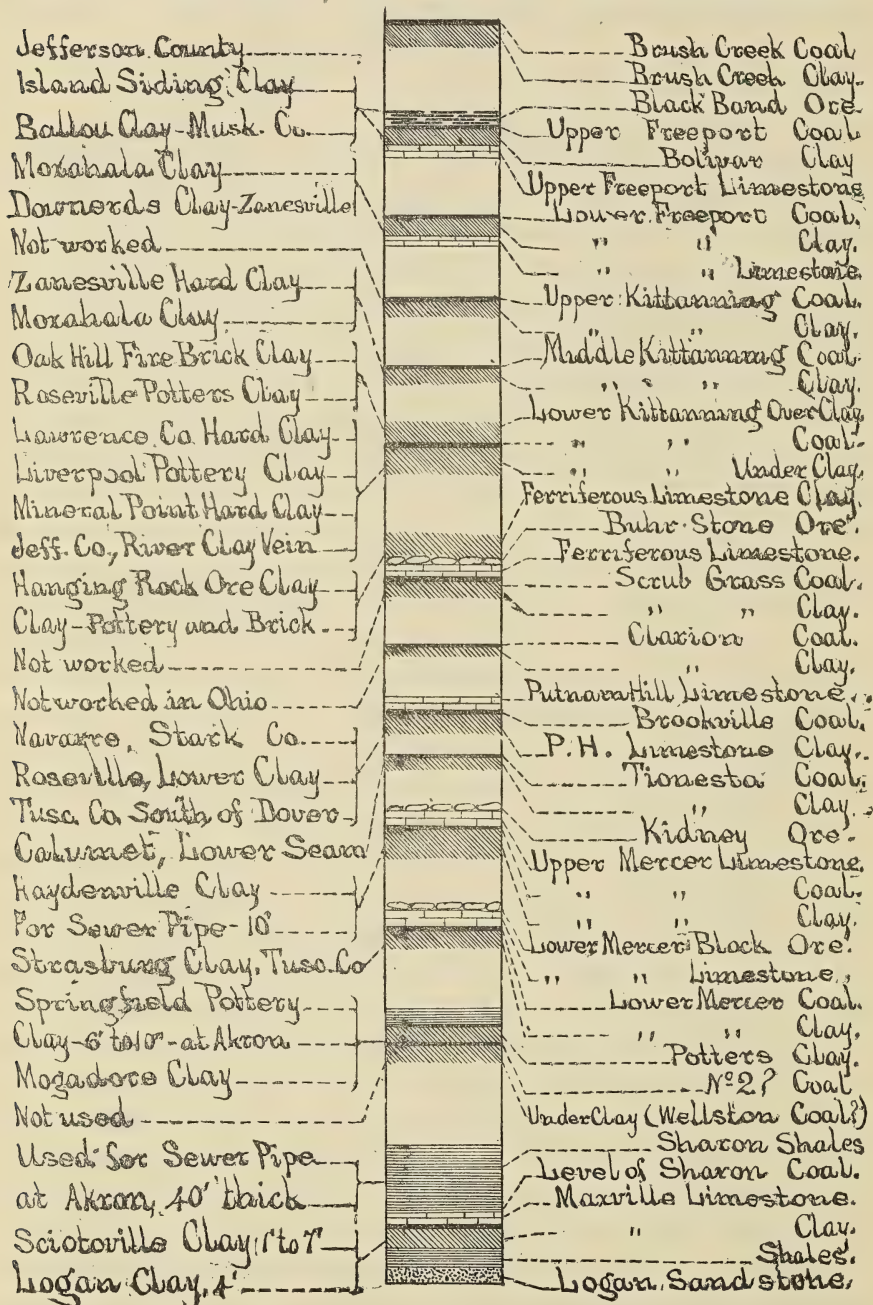 Jefferson County
Island Siding Clay
Ballou Clay-Musk. Co.
Moxahala Clay
Downerds Clay-Zanesville
Not worked
Zanesville Hard Clay
Moxahala Clay
Oak Hill Fire Brick Clay
Roseville Potters Clay
Lawrence Co. Hard Clay
Liverpool Pottery Clay
Mineral Point Hard Clay
Jeff. Co., River Clay Vein
Hanging Rock Ore Clay
Clay-Pottery and Brick
Not worked
Not worked in Ohio
Navarre, Stark Co.
Roseville, Lower Clay
Tusc. Co. South of Dover
Calumet, Lower Seam
Haydenville Clay
For Sewer Pipe-10'
Strasburg Clay, Tusc. Co
Springfield Pottery
Clay-6' to 10'-at Akron
Mogadore Clay
Not used
Used for Sewer Pipe
at Akron, 40' thick
Sciotoville Clay, 1' to 7'
Logan Clay, 4'
Brush Creek Coal
Brush Creek Clay.
Black Band Ore
Upper Freeport Coal
Bolivar Clay
Upper Freeport Limestone
Lower Freeport Coal.
" " Clay.
" " Limestone
Upper Kittanning Coal.
" " Clay.
Middle Kittanning Coal
" " Clay.
Lower Kittanning Over Clay
" " Coal.
" " Under Clay.
Ferriferous Limestone Clay.
Buhr-Stone Ore.
Ferriferous Limestone.
Scrub Grass Coal.
" " Clay.
Clarion Coal.
" Clay.
Putnam Hill Limestone.
Brookville Coal.
P.H. Limestone Clay.
Tionesta Coal.
" Clay.
Kidney Ore.
Upper Mercer Limestone.
" " Coal.
" " Clay.
Lower Mercer Block Ore.
" " Limestone,
Lower Mercer Coal.
" " Clay.
Potters Clay.
Nº 2? Coal
Under Clay (Wellston Coal?)
Sharon Shales
Level of Sharon Coal.
Maxville Limestone.
" Clay.
Shales.
Logan Sandstone.